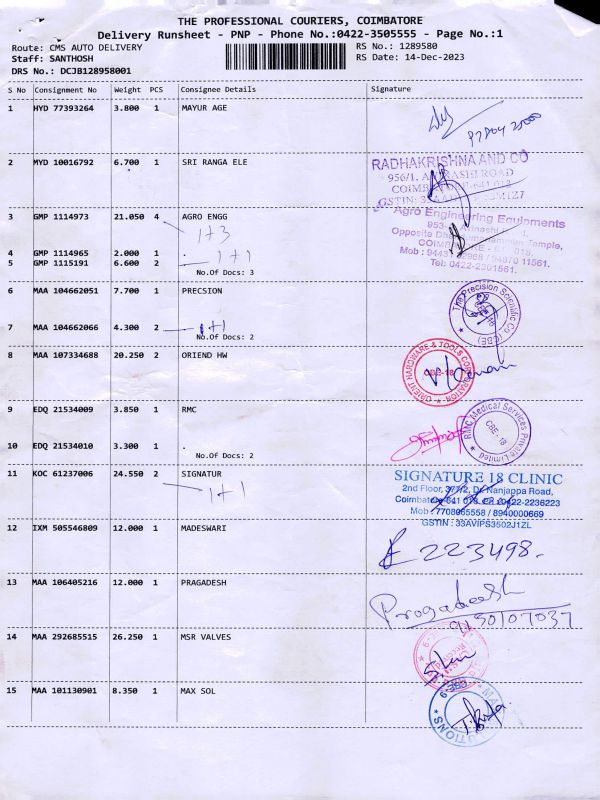 THE PROFESSIONAL COURIERS, COIMBATORE
Delivery Runsheet - PNP - Phone No.:0422-3505555 - Page No.:1
Route: CMS AUTO DELIVERY
RS No.: 1289580
Staff: SANTHOSH
RS Date: 14-Dec-2023
DRS No.: DCJB128958001
S No Consignment No Weight PCS Consignee Details Signature
1 HYD 77393264 3.800 1 MAYUR AGE
2 MYD 10016792 6.700 1 SRI RANGA ELE
RADHAKRISHNA AND CO
3 GMP 1114973 21.050 4 AGRO ENGG
1+3
Agro Engineering Equipments
4 GMP 1114965 2.000 1
5 GMP 1115191 6.600 2
1+1
No.Of Docs: 3
Tel: 0422-2301561.
6 MAA 104662051 7.700 1 PRECSION
The Precision Scientific Co (CBE)
7 MAA 104662066 4.300 2
1+1
No.Of Docs: 2
8 MAA 107334688 20.250 2 ORIEND HW
ORIENT HARDWARE & TOOLS CORPORATION
CBE-18
9 EDQ 21534009 3.850 1 RMC
RMC Medical Services Private Limited
CBE - 18
10 EDQ 21534010 3.300 1
No.Of Docs: 2
11 KOC 61237006 24.550 2 SIGNATUR
1+1
SIGNATURE 18 CLINIC
2nd Floor, 377/2, Dr. Nanjappa Road,
Coimbatore-641 018. 0422-2236223
Mob : 7708065558 / 8940000669
GSTIN : 33AVIPS3502J1ZL
12 IXM 505546809 12.000 1 MADESWARI
223498.
13 MAA 106405216 12.000 1 PRAGADESH
Pragadeesh
14 MAA 292685515 26.250 1 MSR VALVES
15 MAA 101130901 8.350 1 MAX SOL